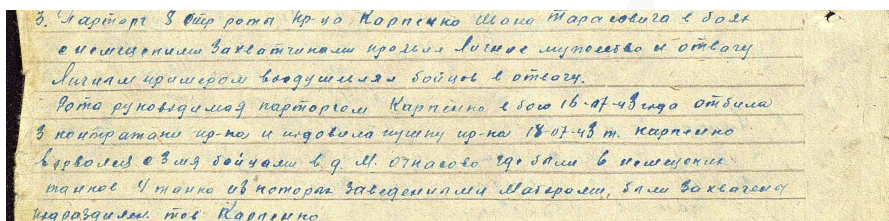 3. Парторг 8 стр роты кр-ца Карпенко Ивана Тарасовича в боях
с немецкими захватчиками проявил личное мужество и отвагу
Личным примером воодушевлял бойцов в отвагу.
Рота руководимая парторгом Карпенко в бою 16-07-43 года отбила
3 контратаки пр-ка и подовила пушку пр-ка 18-07-43 г. Карпенко
ворвался с 3мя бойцами в д. М. Очкасово где были 6 немецких
танков 4 танка из которых заведенными маторами, были захвачены
подразделен. тов Карпенко